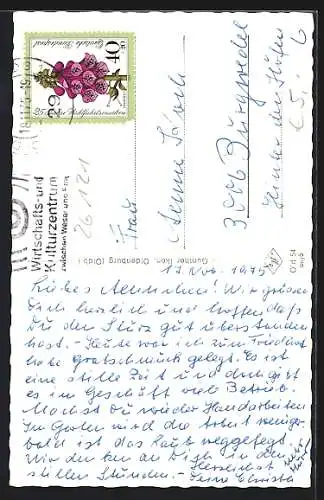 Deutsche Bundespost
40
29
Wirtschafts- und
Kulturzentrum
zwischen Weser und Ems
26121
Frau
Aenne
3006 Burgwedel
Hinter den Höfen
Günther Iken, Oldenburg (Oldb)
17. Nov. 1975
Liebes Aennchen! Wir grüssen
Dich herzlich und hoffen daß
Du den Sturz gut überstanden
hast. – Heute war ich zum Friedhof
habe grabschmuck gelegt. Es ist
eine stille Zeit und doch gibt
es im Geschäft viel Betrieb.
Machst Du wieder Handarbeiten
Im Garten wird die Arbeit weniger
bald ist das Laub weggefegt.
Wir denken an Dich in den
stillen Stunden. –
Herzlichst
Deine Christa